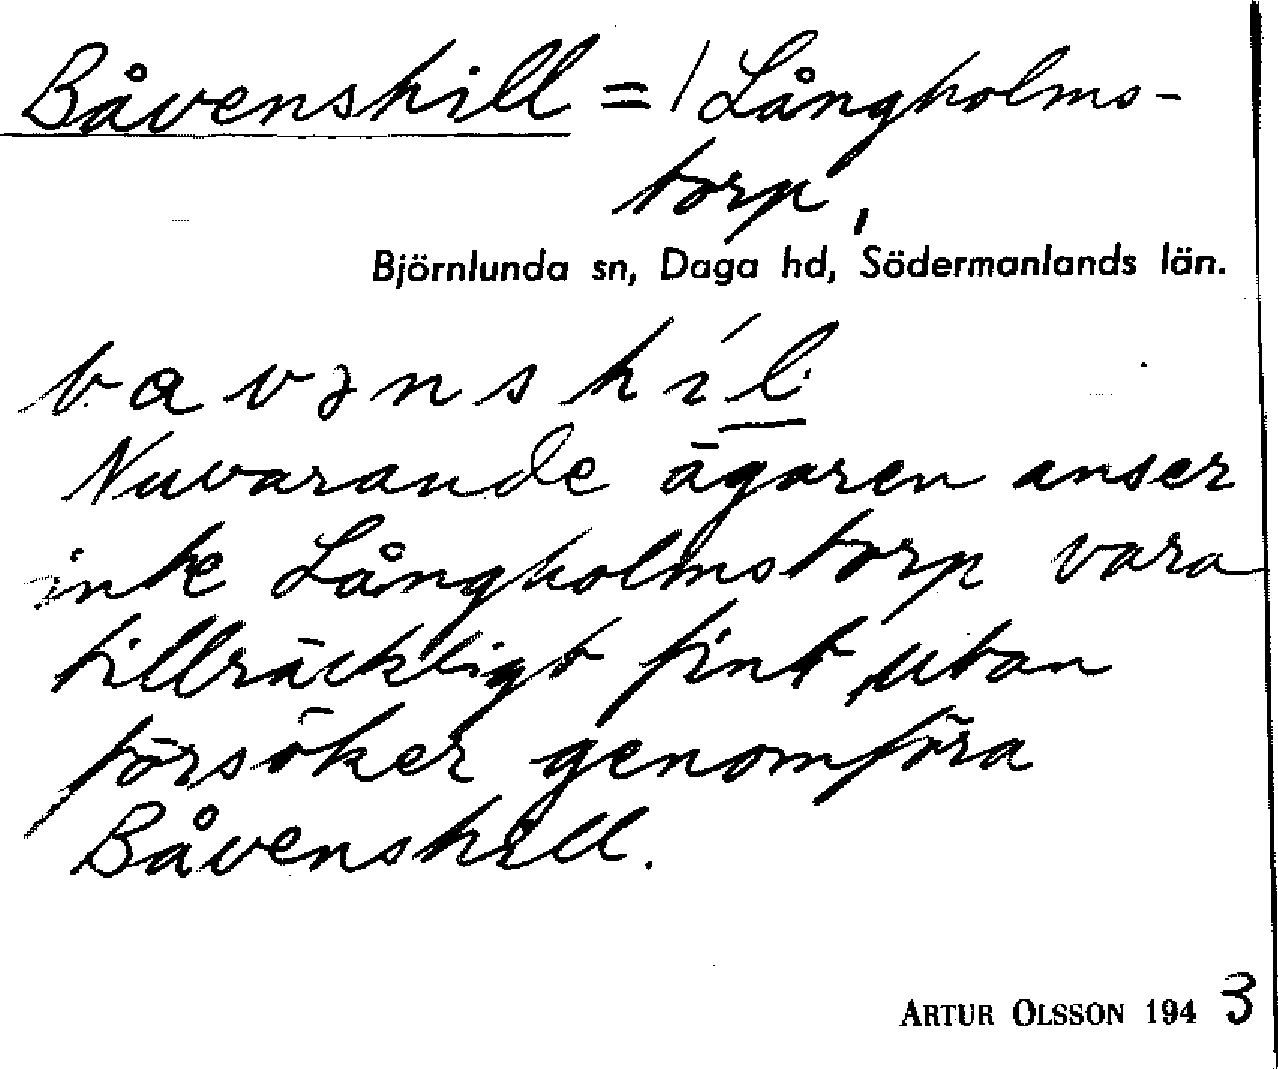 Båvenshill = / Långholms-
torp,
Björnlunda sn, Daga hd, Södermanlands län.
bavənshíl
Nuvarande ägaren anser
inte Långholmstorp vara
tillräckligt fint, utan
försöker genomföra
Båvenshill.
ARTUR OLSSON 1943